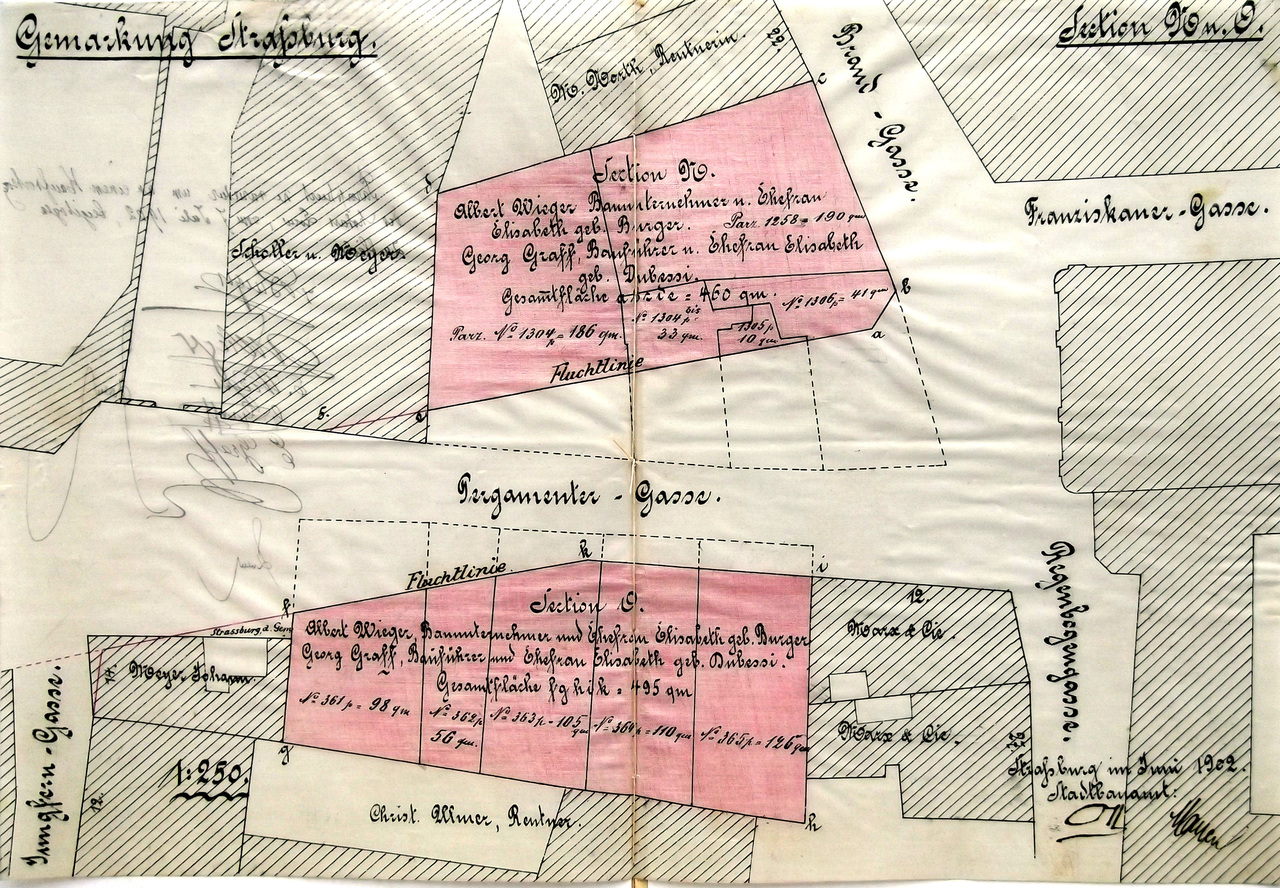 Gemarkung Straßburg.
Section N u. O.
M. North, Rentnerin.
22.
Brand-Gasse.
Franziskaner-Gasse.
c
d
Section N.
Albert Wieger Bauunternehmer u. Ehefrau
Elisabeth geb. Burger. Parz. 1258 = 190 qm
Georg Graff, Bauführer u. Ehefrau Elisabeth
geb. Dubessi.
Gesamtfläche abcde = 460 qm.
Parz. No 1304p = 186 qm.
No 1304p bis
33 qm.
1305p
10 qm
No 1306p = 41 qm
b
a
Fluchtlinie
e
5.
Scholler u. Meyer.
Pergamenter-Gasse.
Fluchtlinie
k
i
f
Section O.
Albert Wieger, Bauunternehmer und Ehefrau Elisabeth geb. Burger
Georg Graff, Bauführer und Ehefrau Elisabeth geb. Dubessi.
Gesamtfläche f g h i k = 495 qm
No 361p = 98 qm
No 362p
56 qm.
No 363p = 105 qm
No 364p = 110 qm
No 365p = 126 qm
g
h
Strassburg, d. Gem.
14.
Meyer Johann.
12.
Jungfern-Gasse.
1:250.
Christ. Ulmer, Rentner.
12.
Marx & Cie.
Marx & Cie.
26
Regenbogengasse.
Straßburg im Juni 1902.
Stadtbauamt: